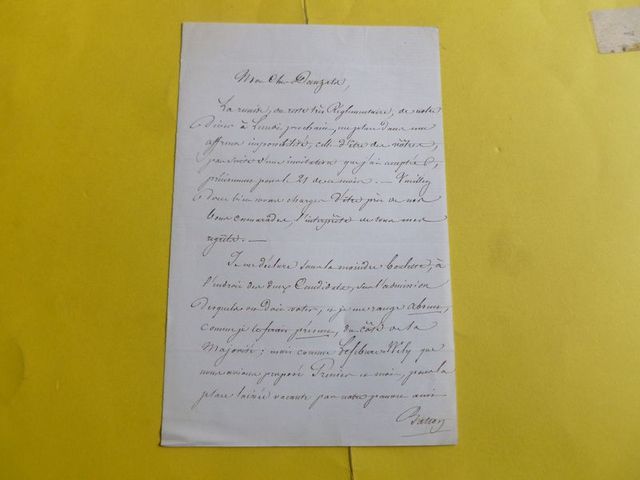 Mon Cher Dauzats,
La remise, du reste très Réglementaire, de notre
Dîner à Lundi prochain, me place dans une
affreuse impossibilité, celle d'être des vôtres,
par suite d'une invitation que j'ai acceptée,
précisément pour le 21 de ce mois. — Veuillez
donc bien vous charger d'être près de nos
bons camarades, l'interprète de tous mes
regrets. —
Je me déclare sans la moindre
à
l'endroit des deux Candidats, sur l'admission
desquels on doit voter, et je me range absent,
comme je le ferais présent, du côté de la
Majorité; mais comme Lefébure Wély que
nous avions proposé Premier et moi, pour la
place laissée vacante par notre pauvre ami